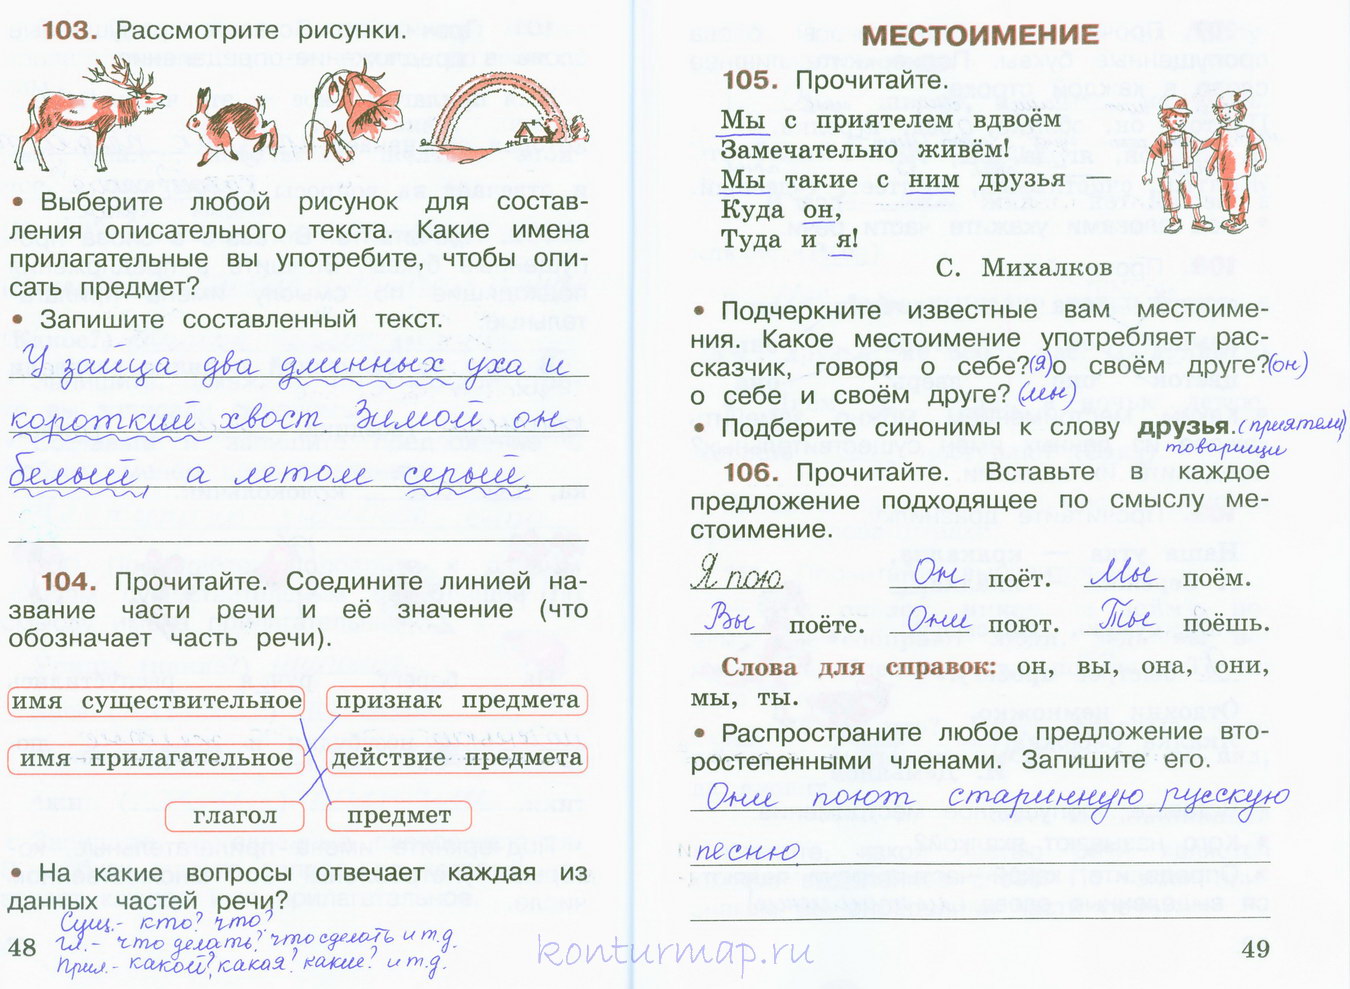 103. Рассмотрите рисунки.
• Выберите любой рисунок для состав-
ления описательного текста. Какие имена
прилагательные вы употребите, чтобы опи-
сать предмет?
• Запишите составленный текст.
У зайца два длинных уха и
короткий хвост Зимой он
белый, а летом серый
104. Прочитайте. Соедините линией на-
звание части речи и её значение (что
обозначает часть речи).
имя существительное признак предмета
имя прилагательное действие предмета
глагол предмет
• На какие вопросы отвечает каждая из
данных частей речи?
Сущ.- кто? что?
Гл.- что делать? что сделать и т.д.
Прил.- какой? какая? какие? и т.д.
48
МЕСТОИМЕНИЕ
105. Прочитайте.
Мы с приятелем вдвоём
Замечательно живём!
Мы такие с ним друзья —
Куда он,
Туда и я!
С. Михалков
• Подчеркните известные вам местоиме-
ния. Какое местоимение употребляет рас-
сказчик, говоря о себе? (Я) о своём друге? (он)
о себе и своём друге? (мы)
• Подберите синонимы к слову друзья. (приятели,
товарищи
106. Прочитайте. Вставьте в каждое
предложение подходящее по смыслу ме-
стоимение.
Я пою. Он поёт. Мы поём.
Вы поёте. Они поют. Ты поёшь.
Слова для справок: он, вы, она, они,
мы, ты.
• Распространите любое предложение вто-
ростепенными членами. Запишите его.
Они поют старинную русскую
песню
49
konturmap.ru